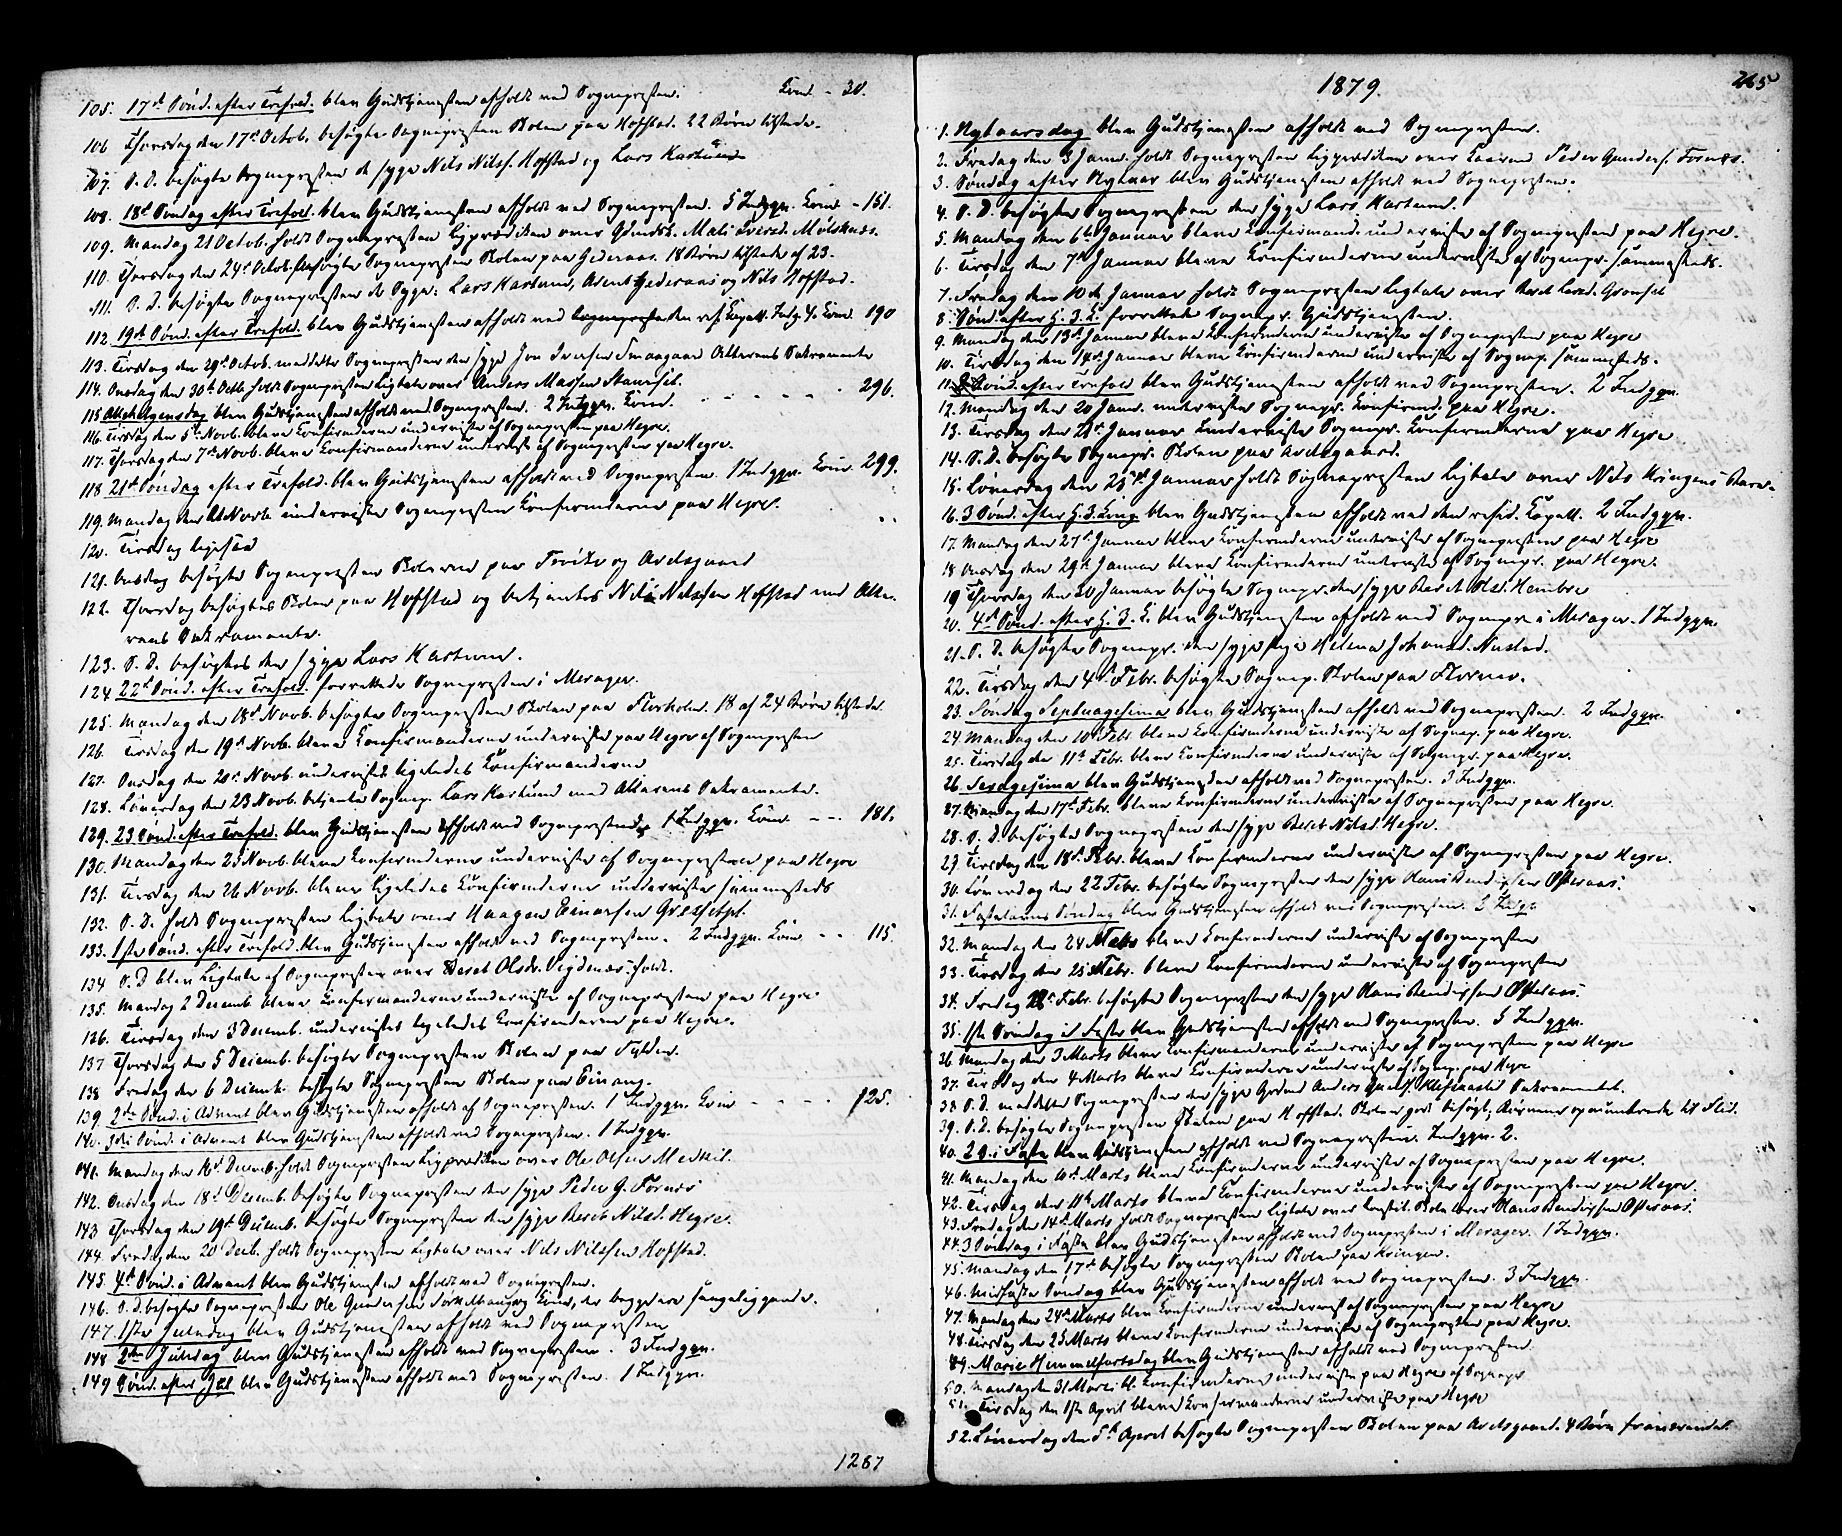 105. 17d Sønd. efter Trefold. blev Gudstjenesten afholdt ved Sognepresten. Kom. - 38.
106 Thorsdag den 17d Octob. besøgte Sognepresten Skolen paa Hofstad. 22 Børn tilstede.
107. S. D. besøgte Sognepresten de syge Nils Nilss. Hofstad og Lars Kastund
108. 18d Søndag efter Trefold. blev Gudstjenesten afholdt ved Sognepresten. 5 Indggn. Kom - 151.
109. Mandag 21 Octob. holdt Sognepresten Ligprædiken over Mali Iversd.
110. Thorsdag den 24d Octob. besøgte Sognepresten Skolen paa Gederaas. 18 Børn tilstede af 23.
111. S. D. besøgte Sognepresten de Syge: Lars Kastund, Gederaas og Nils Hofstad.
112. 19de Sønd. efter Trefold. blev Gudstjenesten afholdt ved den res. Capell. Indg. 4. Kom. 190
113. Tirsdag den 29d Octob. meddelte Sognepresten den syge Jon Iversen Alterens Sakramente
114. Onsdag den 30d Octb. holdt Sognepresten Ligtale over Anders
115 Allehelgensdag blev Gudstjenesten afholdt ved Sognepresten. 2 Indggn. Kom. - - - - - 296.
116. Tirsdag den 5d Novb. bleve Konfirmanderne underviste af Sognepresten paa Hegre.
117. Thorsdag den 7d Novb. bleve Konfirmanderne underviste af Sognepresten paa Hegre.
118 21d Søndag efter Trefold. blev Gudstjenesten afholdt ved Sognepresten. 1 Indggn. Kom. 299.
119. Mandag den Novb. underviste Sognepresten Konfirmanderne paa Hegre.
120. Tirsdag ligesaa
121. Onsdag besøgte Sognepresten Skolerne paa og Ardsgaard
122. Thorsdag besøgtes Skolen paa Hofstad og betjentes Nils Nilssen Hofstad med Alte-
rens Sakramente.
123. S. D. besøgtes den syge Lars Kastund.
124 22d Sønd. efter Trefold. forrettede Sognepresten i Merager.
125. Mandag den 18d Novb. besøgte Sognepresten Skolen paa Florholm. 18 af 24 Børn tilstede
126. Tirsdag den 19d Novb. bleve Konfirmanderne underviste paa Hegre af Sognepresten
127. Onsdag den 20d Novb. undervistes ligeledes Konfirmanderne
128. Lørerdag den 23 Novb. betjente Sognep. Lars Kastund med Alterens Sakramente.
129. 23 Sønd. efter Trefold. blev Gudstjenesten afholdt ved Sognepresten. 1 Indggn. Kom. - - 181.
130. Mandag den 25 Novb. bleve Konfirmanderne underviste af Sognepresten paa Hegre
131. Tirsdag den 26 Novb. bleve ligeledes Konfirmanderne underviste sammesteds
132. S. D. holdt Sognepresten Ligtale over Haagen Einarsen
133. 1ste Sønd. efter Trefold. blev Gudstjenesten afholdt ved Sognepresten. 2 Indggn. Kom. - - 115.
134 S. D blev Ligtale af Sognepresten over Beret Olsdr. Vigdenæs holdt.
135. Mandag 2 Decemb bleve Konfirmanderne underviste af Sognepresten paa Hegre
136. Tirsdag den 3 Decemb. undervistes ligeledes Konfirmanderne paa Hegre.
137 Thorsdag den 5 Decemb. besøgte Sognepresten Skolen paa
138 Fredag den 6 Decemb. besøgte Sognepresten Skolen paa Einang.
139. 2den Sønd. i Advent blev Gudstjenesten afholdt af Sognepresten. 1 Indggn. Kom - - - - 125.
140. 3die Sønd. i Advent blev Gudstjenesten afholdt ved Sognepresten. 1 Indggn.
141. Mandag den 16d Decemb. holdt Sognepresten Ligprædiken over Ole Olsen
142. Onsdag den 18d Decemb. besøgte Sognepresten den syge Peder G. Fornes
143 Thorsdag den 19d Decemb. besøgte Sognepresten den syge Beret Nilsd. Hegre.
144. Fredag den 20 Decb. holdt Sognepresten Ligtale over Nils Nilssen Hofstad.
145. 4d Sønd. i Advent blev Gudstjenesten afholdt ved Sognepresten.
146. S. D. besøgte Sognepresten Ole Gundersen og Kone, der begge ere sengeliggende.
147. 1ste Juledag blev Gudstjenesten afholdt ved Sognepresten
148 2den Juledag blev Gudstjenesten afholdt ved Sognepresten. 3 Indggn.
149 Sønd. efter Jul blev Gudstjenesten afholdt ved Sognepresten. 1 Indggn.
1287
265
1879.
1. Nytaarsdag blev Gudstjenesten afholdt ved Sognepresten.
2. Fredag den 3 Janr. holdt Sognepresten Ligprædiken over Peder Gunders. Fornæs.
3. Søndag efter Nytaar blev Gudstjenesten afholdt ved Sognepresten.
4. S. D. besøgte Sognepresten den syge Lars Kastund.
5. Mandag den 6te Januar bleve Konfirmanderne underviste af Sognepresten paa Hegre.
6. Tirsdag den 7d Januar bleve Konfirmanderne underviste af Sognepr. sammesteds.
7. Fredag den 10d Januar holdt Sognepresten Ligtale over Beret
8. Sønd. efter H. 3. K. forrettede Sognepr. Gudstjenesten.
9. Mandag den 13d Januar bleve Konfirmanderne underviste af Sognepresten paa Hegre
10. Tirsdag den 14d Januar bleve Konfirmanderne underviste af Sognep. sammesteds.
11. Sønd. efter Trefold blev Gudstjenesten afholdt ved Sognepresten. 2 Indggn.
12. Mandag den 20 Janr. underviste Sognepr. Konfirmd. paa Hegre.
13. Tirsdag den 21d Januar underviste Sognepr. Konfirmanderne paa Hegre
14. S. D. besøgte Sognepr. Skolen paa Ardsgaard.
15. Lørerdag den 25d Januar holdt Sognepresten Ligtale over Nils Kringens Barn.
16. 3 Sønd. efter H. 3. Kong. blev Gudstjenesten afholdt ved den resid. Capell. 2 Indggn.
17. Mandag den 27d Januar bleve Konfirmanderne underviste af Sognepresten paa Hegre
18 Onsdag den 29d Januar bleve Konfirmanderne underviste af Sognepr. paa Hegre.
19 Thorsdag den 30 Januar besøgte Sognepr. den syge Beret Hembre
20. 4d Sønd. efter H. 3. K. blev Gudstjenesten afholdt ved Sognepr. i Merager. 1 Indggn.
21. S. D. besøgte Sognepr. den syge Pige Helena Johansd. Nustad.
22. Tirsdag den 4d Febr. besøgte Sognep. Skolen paa Flornes.
23. Søndag Septuagesima blev Gudstjenesten afholdt ved Sognepresten. 2 Indggn.
24. Mandag den 10 Febr. bleve Konfirmanderne underviste af Sognep. paa Hegre.
25. Tirsdag den 11d Febr. bleve Konfirmanderne underviste af Sognepr. paa Hegre.
26. Sexagesima blev Gudstjenesten afholdt ved Sognepresten. 3 Indggn.
27. Mandag den 17d Febr. bleve Konfirmanderne underviste af Sognepresten paa Hegre.
28. S. D. besøgte Sognepresten den syge Beret Nilsd. Hegre.
29. Tirsdag den 18d Febr. bleve Konfirmanderne underviste af Sognepresten paa Hegre.
30. Lørerdag den 22 Febr. besøgte Sognepresten den syge Hans Bendixsen Østeraas.
31. Fastelavns Søndag blev Gudstjenesten afholdt ved Sognepresten. 2 Indg.
32. Mandag den 24 Febr bleve Konfirmanderne underviste af Sognepresten
33. Tirsdag den 25 Febr. bleve Konfirmanderne underviste af Sognepresten
34. Fredag 28d Febr. besøgte Sognepresten den syge Hans Bendixsen Østeraas.
35. 1ste Søndag i Faste blev Gudstjenesten afholdt ved Sognepresten. 5 Indggn.
36. Mandag den 3 Marts bleve Konfirmanderne underviste af Sognepresten paa Hegre
37. Tirsdag den 4 Marts bleve Konfirmanderne underviste af Sognep. paa Hegre
38 S. D. meddelte Sognepresten den syge Anders Sakramentet.
39. S. D. besøgte Sognepresten Skolen paa Hofstad. Skolen godt besøgt, Børnene opmuntrede til Flid.
40. 2 S. i Faste blev Gudstjenesten afholdt ved Sognepresten. Indggn. 2.
41. Mandag den 10d Marts bleve Konfirmanderne underviste af Sognepresten paa Hegre.
42. Tirsdag den 11te Marts bleve Konfirmanderne underviste af Sognepresten paa Hegre.
43. Fredag den 14d Marts holdt Sognepresten Ligtale over Hans Bendixsen Østeraas.
44. 3 Søndag i Faste blev Gudstjenesten afholdt ved Sognepresten i Merager. 1 Indggn.
45. Mandag den 17d besøgte Sognepresten Skolen paa Kringen.
46. Midfaste Søndag blev Gudstjenesten afholdt ved Sognepresten. 3 Indggn.
47. Mandag den 24d Marts blev Konfirmanderne undervist af Sognepresten paa Hegre
48. Tirsdag den 25 Marts bleve Konfirmanderne underviste af Sognepresten paa Hegre.
49. Mariæ Himmelfartsdag blev Gudstjenesten afholdt ved Sognepresten.
50. Mandag den 31 Marts bl. Konfirmanderne underviste paa Hegre af Sognepr
51. Tirsdag den 1ste April bleve Konfirmanderne underviste paa Hegre
52. Lørerdag den 5d April besøgte Sognepresten Skolen paa Ardsgaard. 4 Børn fraværende.